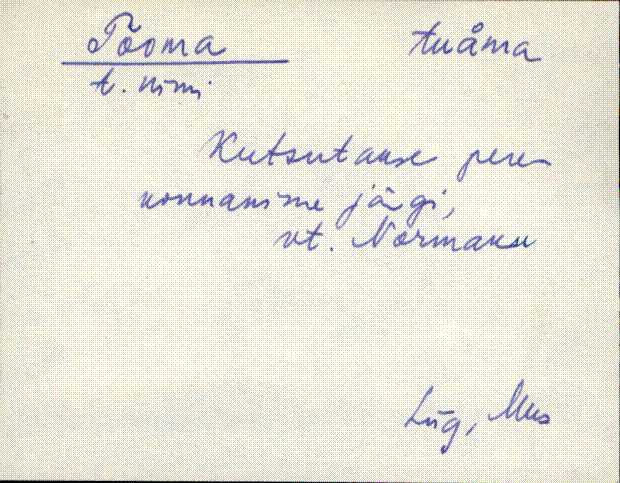 Tooma tuåma
t. nimi
Kutsutakse pere-
konnanime järgi,
vt. Normaku
Lüg, Mus